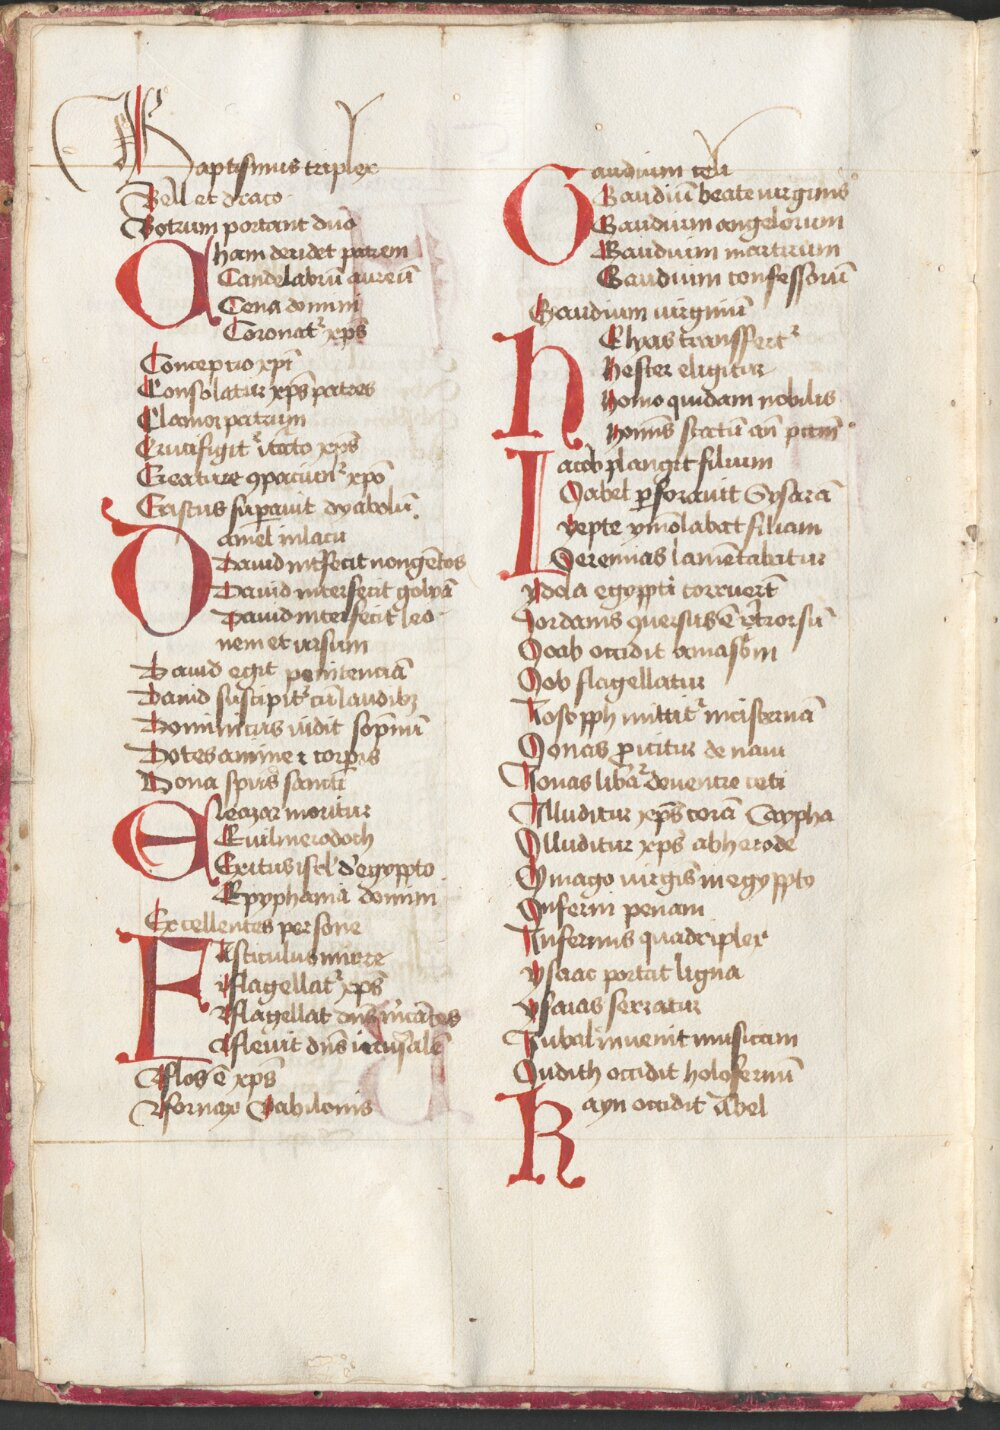 Baptismus triplex
Bel et draco
Botrum portant duo
Cham deridet patrem
Candelabrū aureū
Cena domini
Coronatᷣ xp̄s
Conceptio xp̄i
Consolatur xp̄s patres
Clamor patrum
Crucifigit xp̄s
Creature ꝯpaciūnᷣ xp̄o
Cristus suꝑauit dyabolū
Daniel in lacu
Dauid intᷣfecit nongētos
Dauid interfecit golyā
Dauid interfecit leo
nem et vrsum
Dauid egit penitenciā
Dauid suscipitᷣ cū laudibꝫ
Dominicus vidit sōpniū
Dotes anime ⁊ corꝑis
Dona spūs sancti
Eleazar moritur
Euilmerodoch
Exitus isrl̄ d' egypto
Epyphania domini
Excellentes persone
Fasciculus mirre
Flagellatᷣ xp̄s
Flagellat dn̄s
Fleuit dn̄s ierusalē
Flos ē xp̄s
Fornax babilonis
Gaudium celi
Gaudiū beate virginis
Gaudium angelorum
Gaudium martirum
Gaudium confessorū
Gaudium virginū
Helyas transffertᷣ
Hester eligitur
Homo quidam nobilis
Hominis statū
Iacob plangit filium
Iahel ꝑforauit Sysarā
Iepte ymolabat filiam
Ieremias lamētabatur
Ydola egyppti corruerūt
Iordanis ꝯuersus ē retrorsū
Ioab occidit amasam
Iob flagellatur
Ioseph mittitᷣ in cisternā
Ionas proicitur de naui
Ionas libᷣatᷣ de ventre ceti
Illuditur xp̄s corā Caypha
Illuditur xp̄s ab herode
Ymago virgīs in egyppto
Inferni penam
Infernus quadruplex
Ysaac portat ligna
Ysaias serratur
Iubal inuenit musicam
Iudith occidit holofernū
Kayn occidit Abel